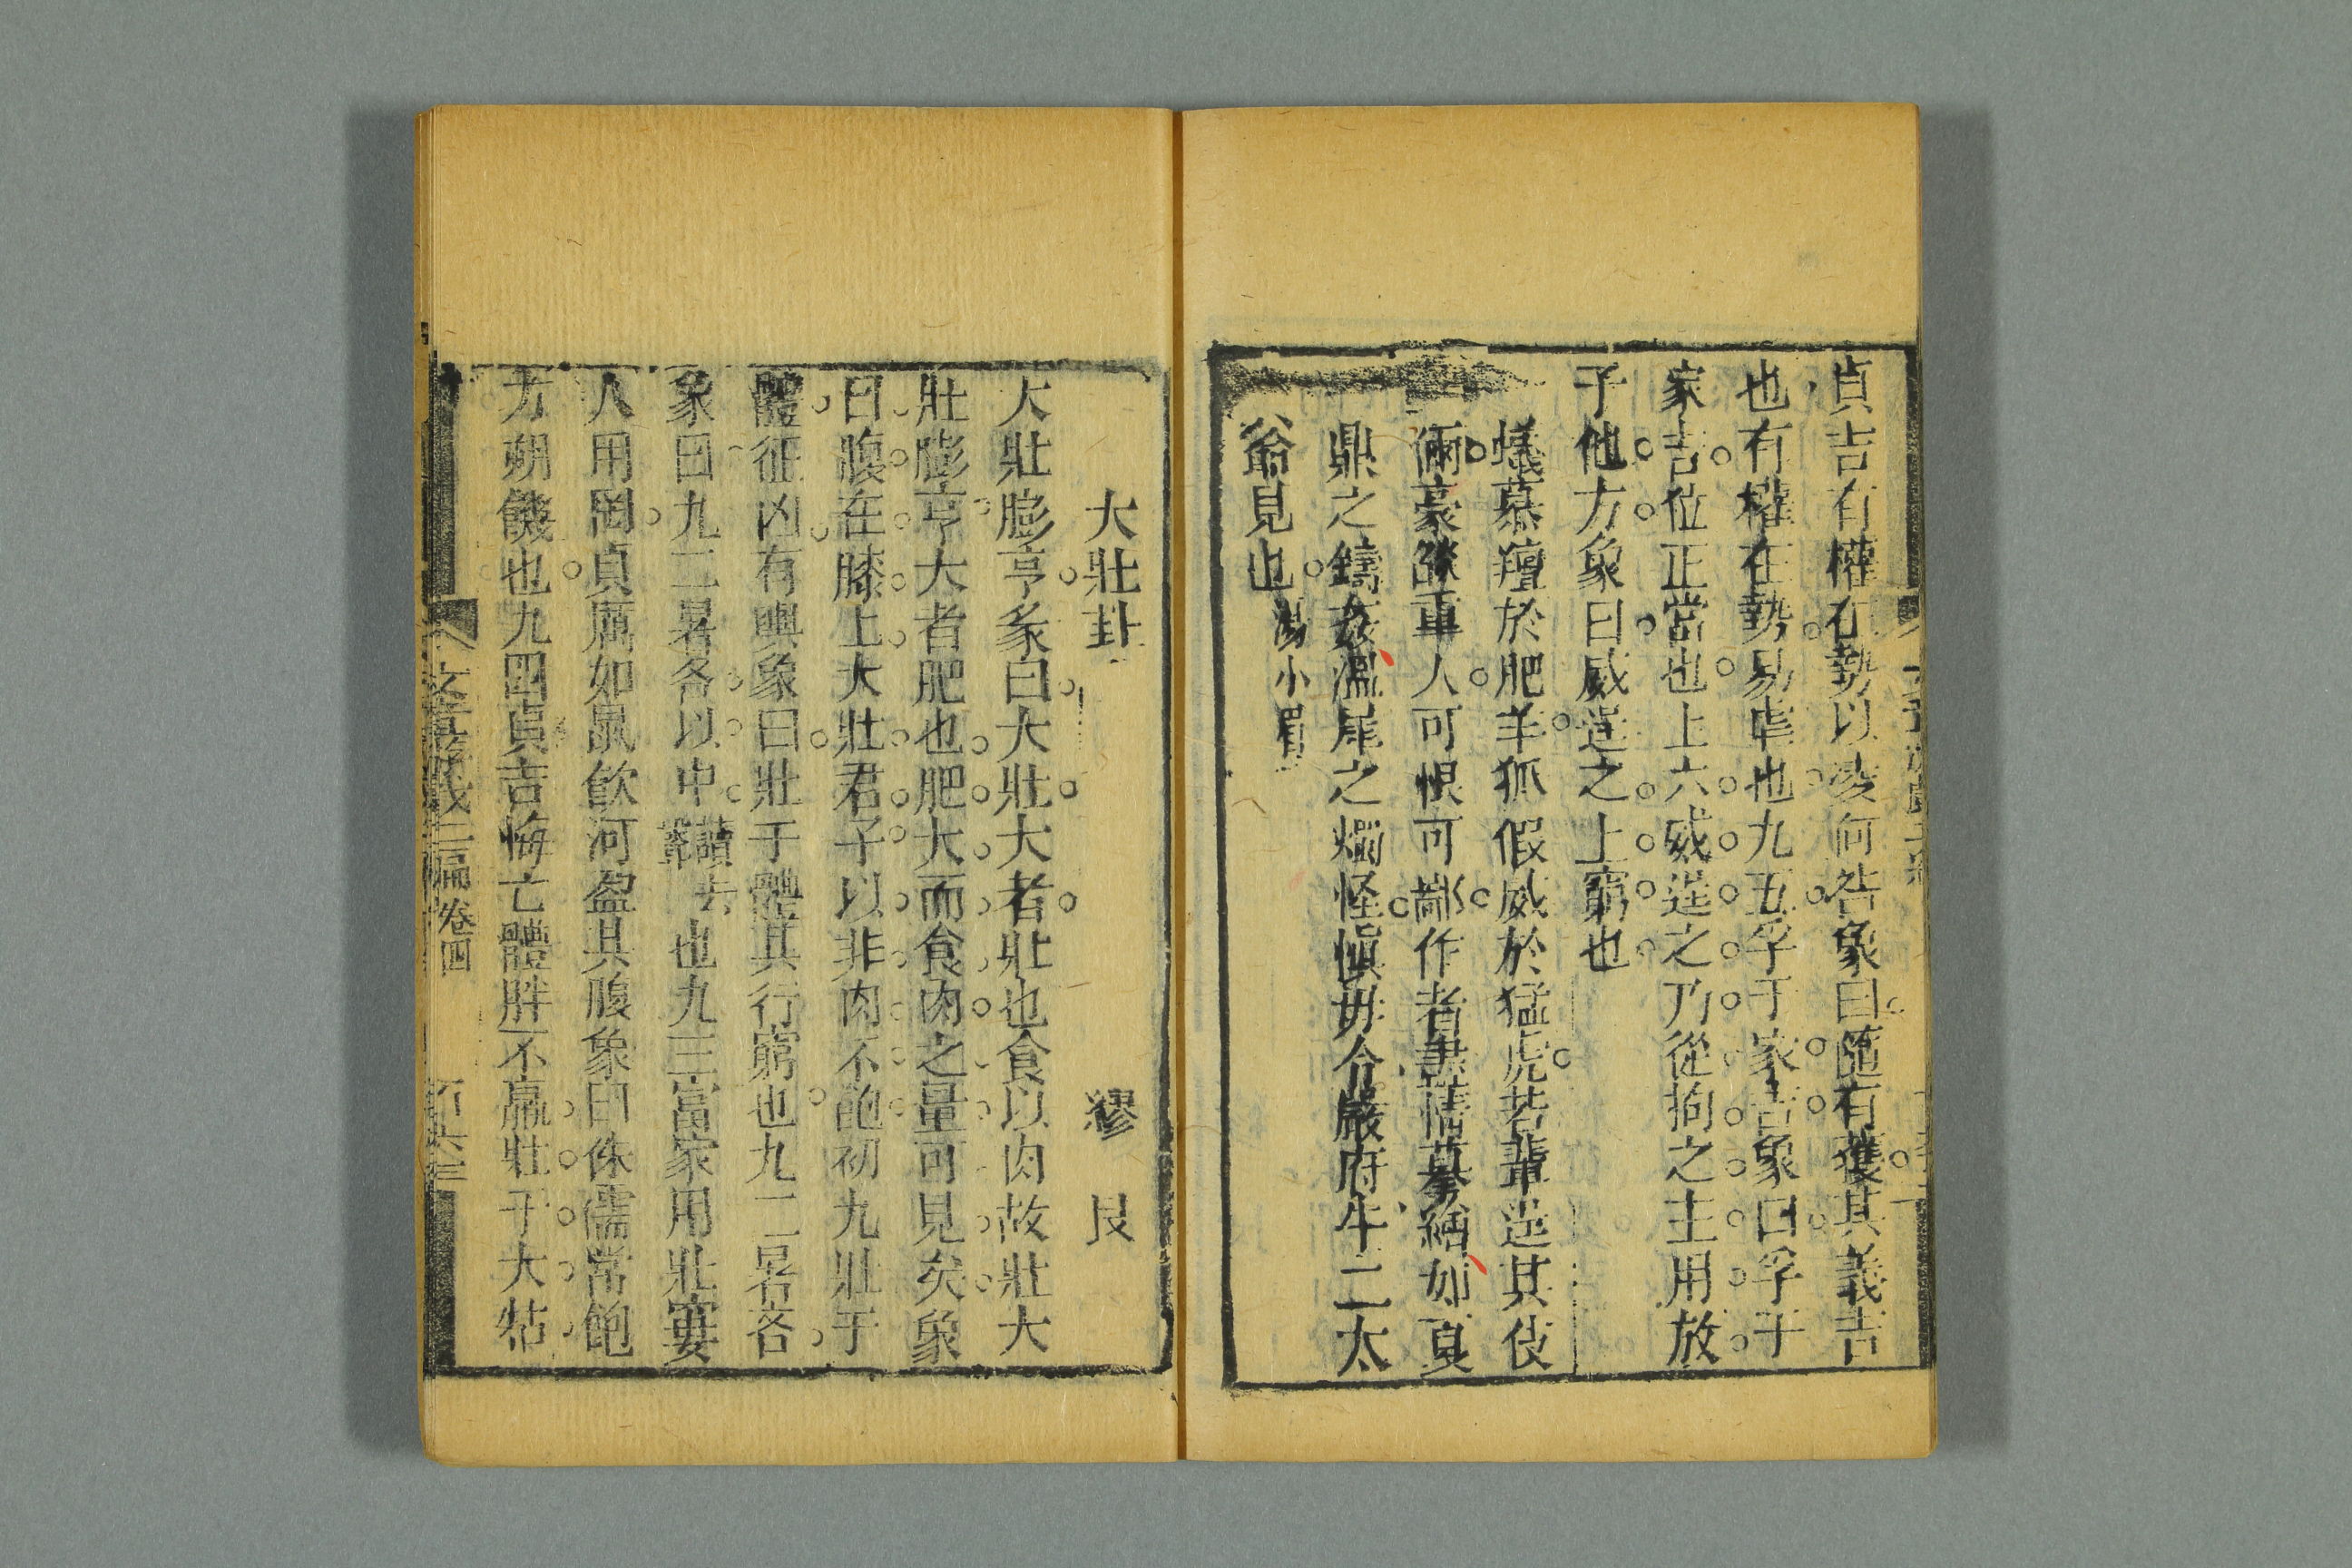 貞吉有權在勢以凌何咎象曰隨有獲其義吉
也有權在勢易虐也九五孚于家吉象曰孚于
家吉位正當也上六威逞之乃從拘之主用放
于他方象曰威逞之上窮也
蟻慕羶於肥羊狐假威於猛虎若輩逞其伎
倆豪餤重人可恨可鄙作者畫情摹繪如夏
鼎之鑄姦溫犀之燭怪愼毋令嚴府牛二太
爺見也湯小眉
大壯卦 繆艮
大壯膨亨彖曰大壯大者壯也食以肉故壯大
壯膨亨大者肥也肥大而食肉之量可見矣象
曰腹在膝上大壯君子以非肉不飽初九壯于
體征凶有輿象曰壯于體其行窮也九二暑吝
象曰九二暑各以中讀去聲也九三富家用壯窶
人用罔貞厲如鼠飲河盈其腹象曰侏儒常飽
方朔饑也九四貞吉悔亡體胖不羸壯于大牯
文章游戲三編 卷四